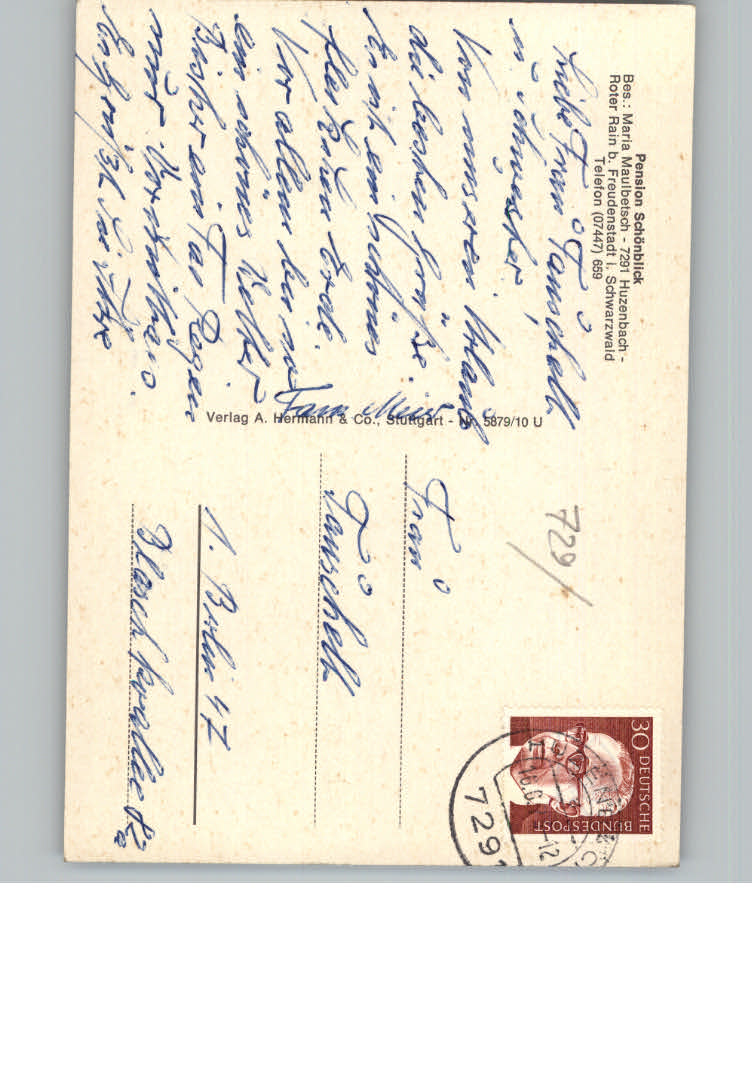 Pension Schönblick
Bes.: Maria Maulbetsch - 7291 Huzenbach -
Roter Rain b. Freudenstadt i. Schwarzwald
Telefon (07447) 659
Liebe Frau Tauschell
u Schwester,
Von unserem Urlaub
die besten Grüße.
Es ist ein schönes
Erde
Vor allem
ein schönes Wetter
Bisher ein Tag Regen
nur Vormittag.
Es grüßt Sie Ihre
Fam Meier
Verlag A. Hermann & Co., Stuttgart - Nr. 5879/10 U
729/
Frau
Tauschell
1. Berlin 47
82a
30 DEUTSCHE
BUNDESPOST
7291
-12